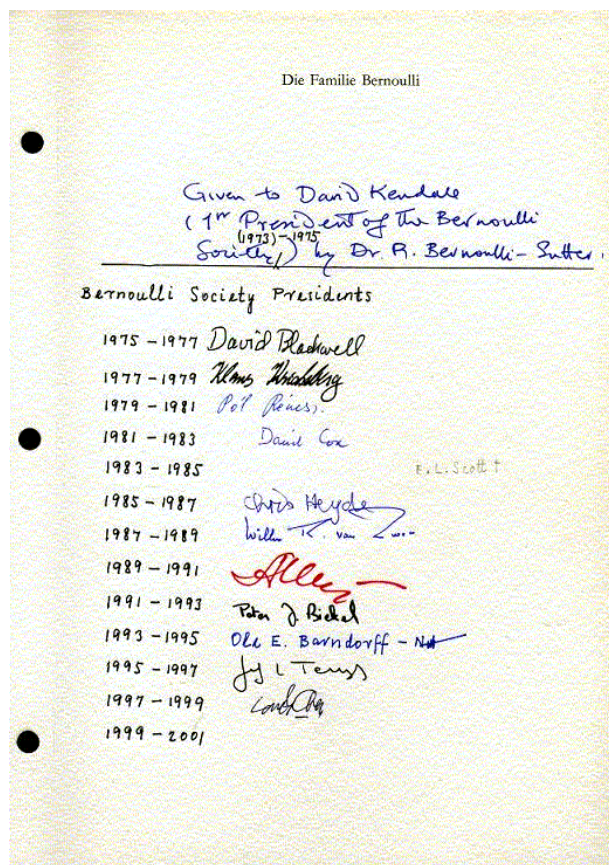 Die Familie Bernoulli
Given to David Kendall
(1st President of the Bernoulli
(1973)-1975
Society,) by Dr. R. Bernoulli-Sutter.
Bernoulli Society Presidents
1975-1977 David Blackwell
1977-1979 Klaus Krickeberg
1979-1981 Pál Révész.
1981-1983 David Cox
1983-1985 E.L.Scott †
1985-1987 Chris Heyde
1987-1989 Willem R. van Zwet
1989-1991
1991-1993 Peter J Bickel
1993-1995 Ole E. Barndorff-
1995-1997
1997-1999 Louis Chen
1999-2001